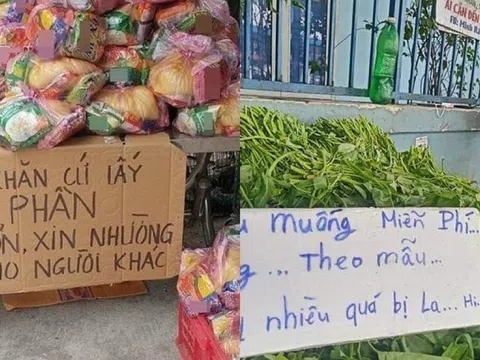 KHĂN CỨ LẤY
PHẦN
ỔN, XIN NHƯỜNG
HO NGƯỜI KHÁC
AI CẦN ĐẾN
FB: Minh
muống Miễn Phí...
... Theo mẫu...
nhiều quá bị La... Hi..